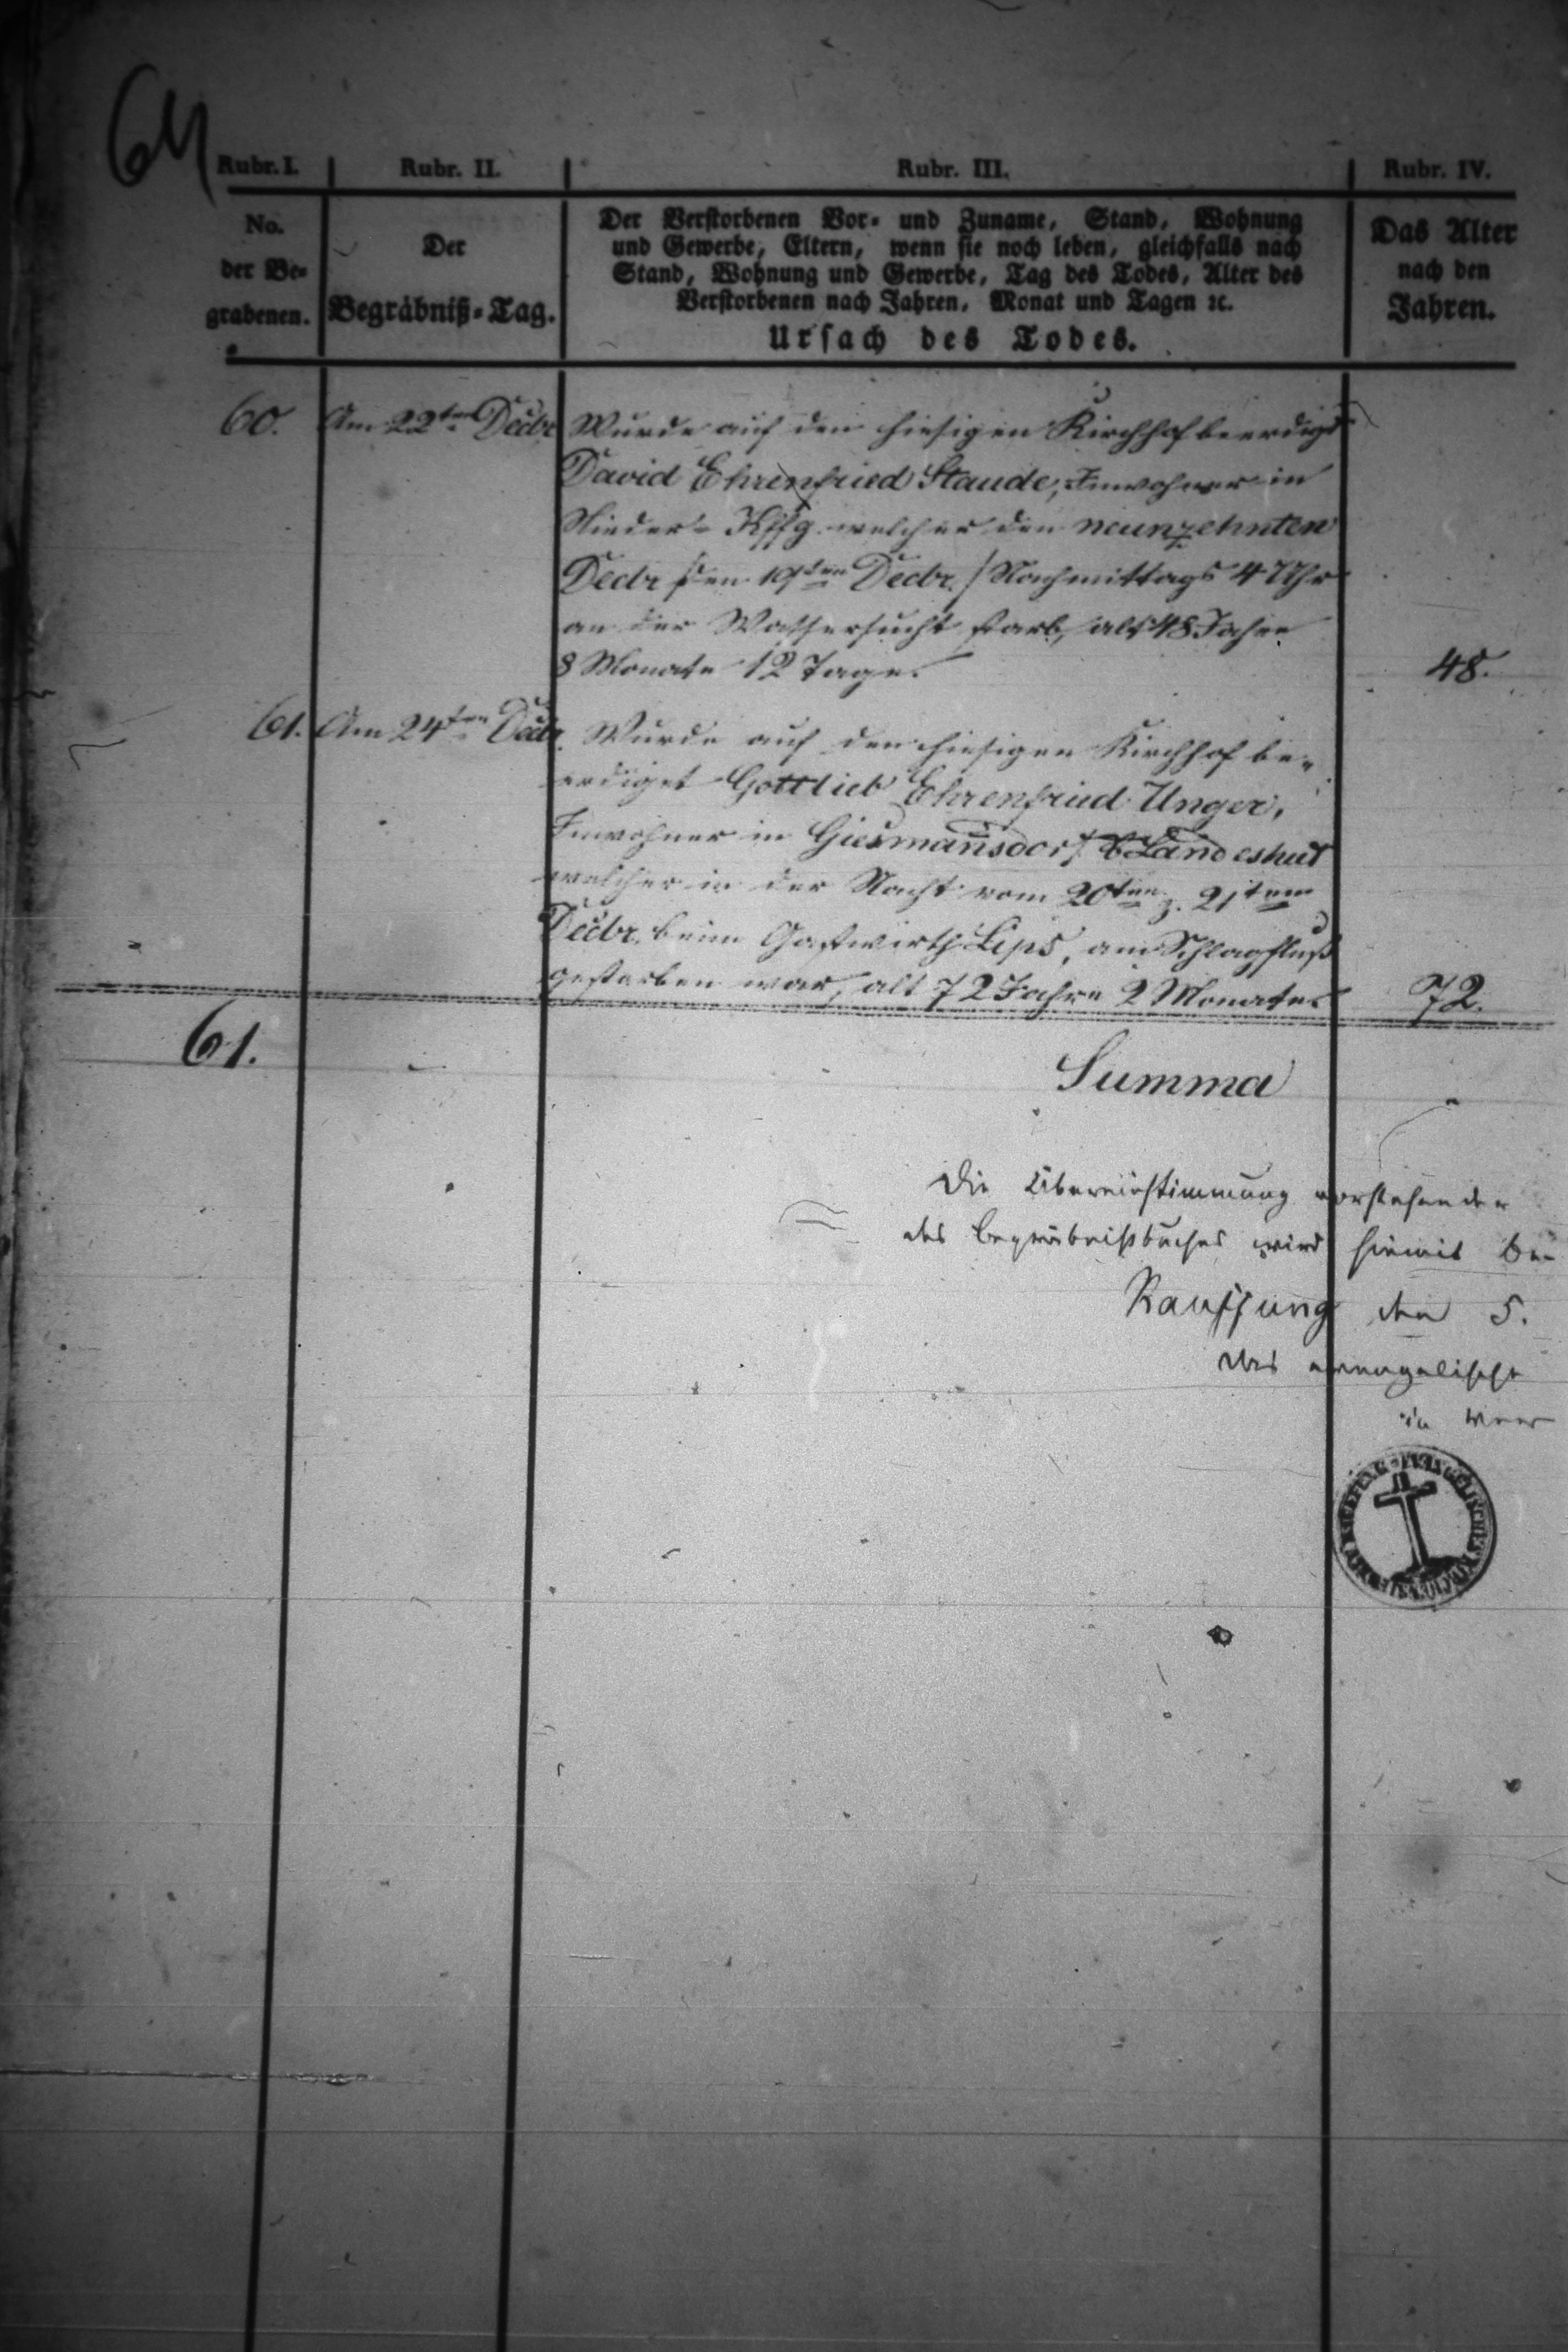 64
Rubr. I. Rubr. II. Rubr. III. Rubr. IV.
No.
der Be-
grabenen.
Der
Begräbniß-Tag.
Der Verstorbenen Vor- und Zuname, Stand, Wohnung
und Gewerbe, Eltern, wenn sie noch leben, gleichfalls nach
Stand, Wohnung und Gewerbe, Tag des Todes, Alter des
Verstorbenen nach Jahren, Monat und Tagen ꝛc.
Ursach des Todes.
Das Alter
nach den
Jahren.
60. Am 22ten Decbr. Wurde auf den hiesigen Kirchhof beerdigt
David Ehrenfried Staude, Inwohner in
Nieder-Kffg. welcher den neunzehnten
Decbr /den 19ten Decbr./ Nachmittags 4 Uhr
an der Wassersucht starb, alt 48 Jahre
8 Monate 12 Tage. 48.
61. Am 24ten Decbr. Wurde auf den hiesigen Kirchhof be-
erdiget Gottlieb Ehrenfried Unger,
Inwohner in Giesmannsdorf b Landeshut
welcher in der Nacht vom 20ten z. 21ten
Decbr. beim Gastwirth Lips, am Schlagfluß
gestorben war, alt 72 Jahre 2 Monate. 72.
61.
Summa
Die Übereinstimmung vorstehender
des Begräbnißbuches wird hiemit be-
Kauffung den 5.
Das evangelische